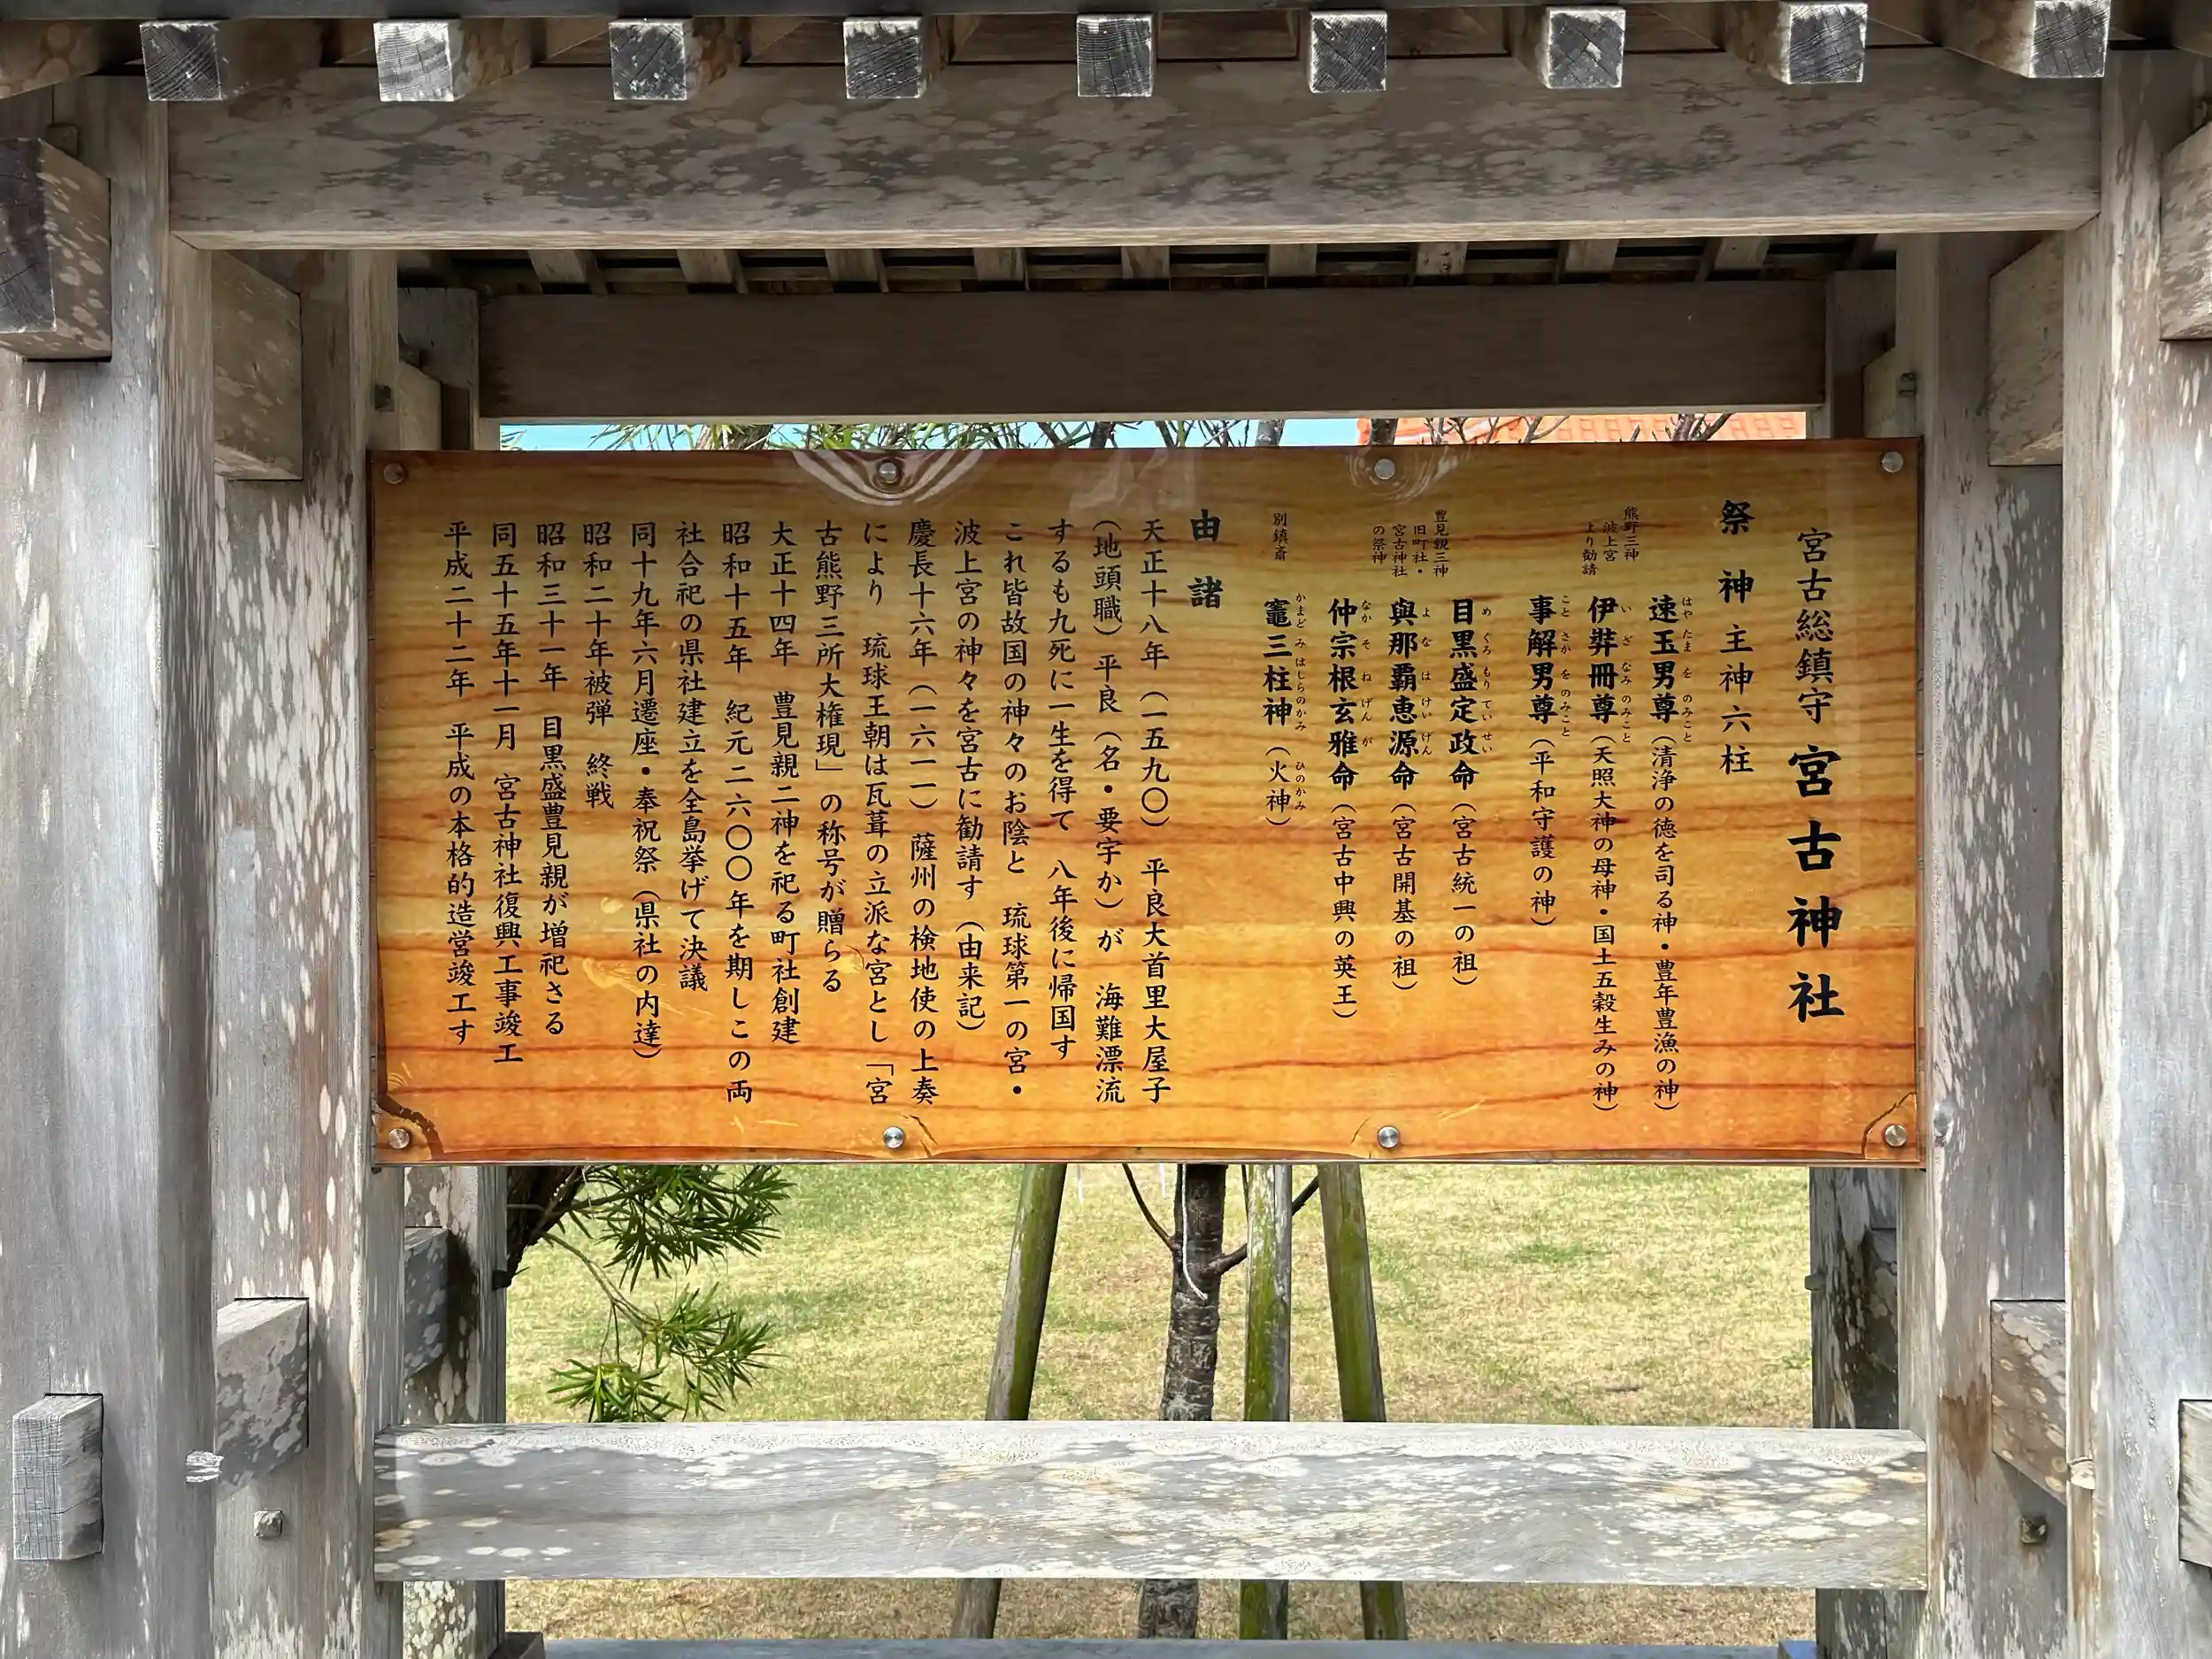 宮古総鎮守 宮古神社
祭神 主神六柱
熊野三神
波上宮
より勧請
速玉男尊（清浄の徳を司る神・豊年豊漁の神）
はや たま を のみこと
伊弉冊尊（天照大神の母神・国土五穀生みの神）
い ざ なみ のみこと
事解男尊（平和守護の神）
こと さか を のみこと
豊見親三神
旧町社・
宮古神社
の祭神
目黒盛定政命（宮古統一の祖）
め ぐろ もり てい せい
與那覇恵源命（宮古開基の祖）
よ な は けい げん
仲宗根玄雅命（宮古中興の英王）
なか そ ね げん が
別鎮斎
竈三柱神（火神）
かまど み はしらのかみ ひのかみ
由諸
天正十八年（一五九〇） 平良大首里大屋子
（地頭職）平良（名・要字か）が 海難漂流
するも九死に一生を得て 八年後に帰国す
これ皆故国の神々のお陰と 琉球第一の宮・
波上宮の神々を宮古に勧請す（由来記）
慶長十六年（一六一一） 薩州の検地使の上奏
により 琉球王朝は瓦葺の立派な宮とし「宮
古熊野三所大権現」の称号が贈らる
大正十四年 豊見親二神を祀る町社創建
昭和十五年 紀元二六〇〇年を期しこの両
社合祀の県社建立を全島挙げて決議
同十九年六月遷座・奉祝祭（県社の内達）
昭和二十年被弾 終戦
昭和三十一年 目黒盛豊見親が増祀さる
同五十五年十一月 宮古神社復興工事竣工
平成二十二年 平成の本格的造営竣工す